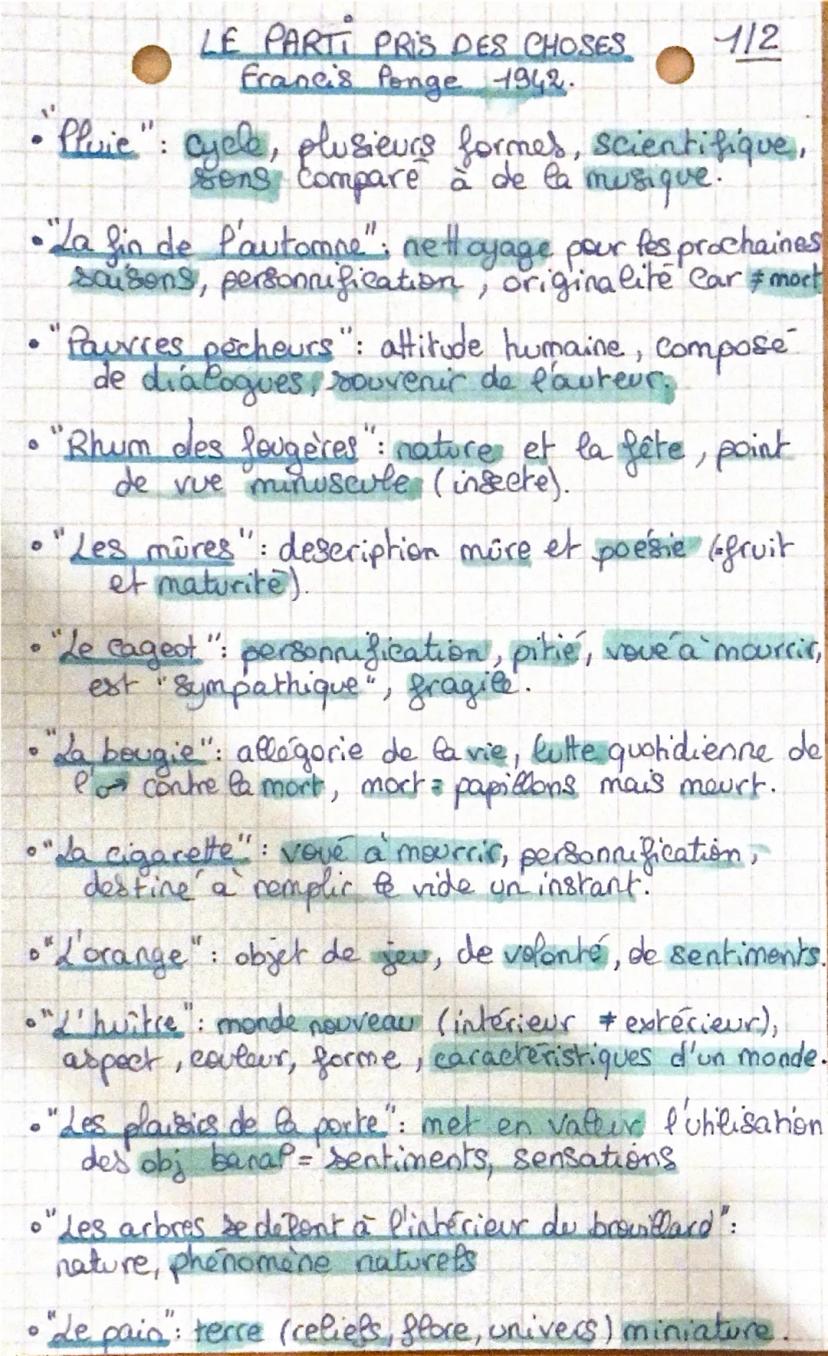 LE PARTI PRIS DES CHOSES 1/2
Francis Ponge 1942.
• "Pluie" : cycle, plusieurs formes, scientifique,
sons comparé à de la musique.
• "La fin de l'automne" : nettoyage pour les prochaines
saisons, personnification, originalité car ≠ mort
• "Pauvres pécheurs" : attitude humaine, composé
de dialogues, souvenir de l'auteur.
• "Rhum des fougères" : nature et la fête, point
de vue minuscule (insecte).
• "Les mûres" : description mûre et poésie (=fruit
et maturité).
• "Le cageot" : personnification, pitié, voué à mourrir,
est "sympathique", fragile.
• "La bougie" : allégorie de la vie, lutte quotidienne de
l'♂ contre la mort, mort = papillons mais meurt.
• "La cigarette" : voué à mourrir, personnification,
destiné à remplir le vide un instant.
• "L'orange" : objet de jeu, de volonté, de sentiments.
• "L'huître" : monde nouveau (intérieur ≠ extérieur),
aspect, couleur, forme, caractéristiques d'un monde.
• "Les plaisirs de la porte" : met en valeur l'utilisation
des obj banal = sentiments, sensations
• "Les arbres se défont à l'intérieur du brouillard" :
nature, phénomène naturels
• "Le pain" : terre (reliefs, flore, univers) miniature.